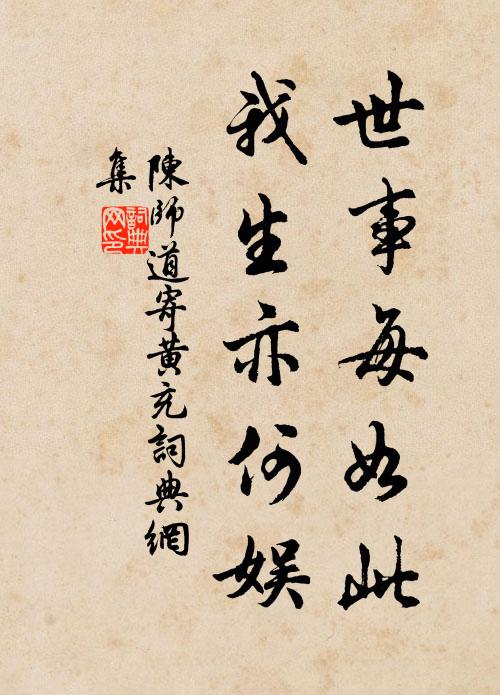 世事每如此
我生亦何娱
陳師道寄黄充詞典網
集
詞典
网印